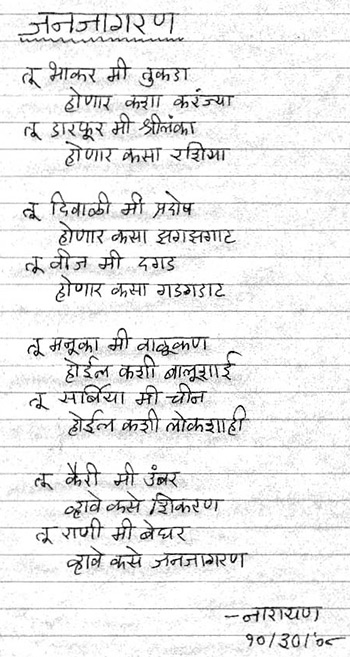 जनजागरण
तू भाकर मी तुकडा
होणार कशा करंज्या
तू डारफूर मी श्रीलंका
होणार कसा रशिया
तू दिवाळी मी प्रदोष
होणार कसा झगझगाट
तू वीज मी दगड
होणार कसा गडगडाट
तू मनूका मी वाळूकण
होईल कशी बालूशाई
तू सर्बिया मी चीन
होईल कशी लोकशाही
तू कैरी मी उंबर
व्हावे कसे शिकरण
तू राणी मी बेघर
व्हावे कसे जनजागरण
–नारायण
१०/३०/'०८